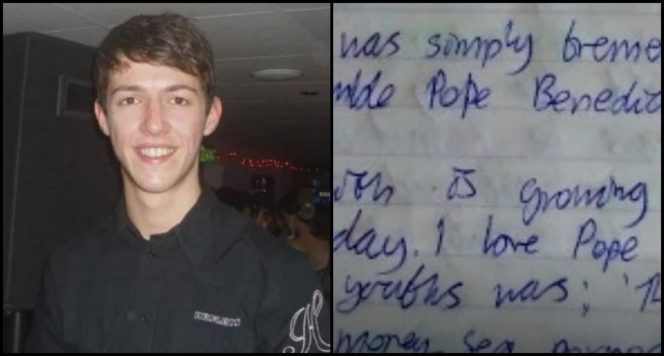 was simply treme
mble Pope Benedic
is growing
day. I love Pope
youths was; 'Th
money, sex